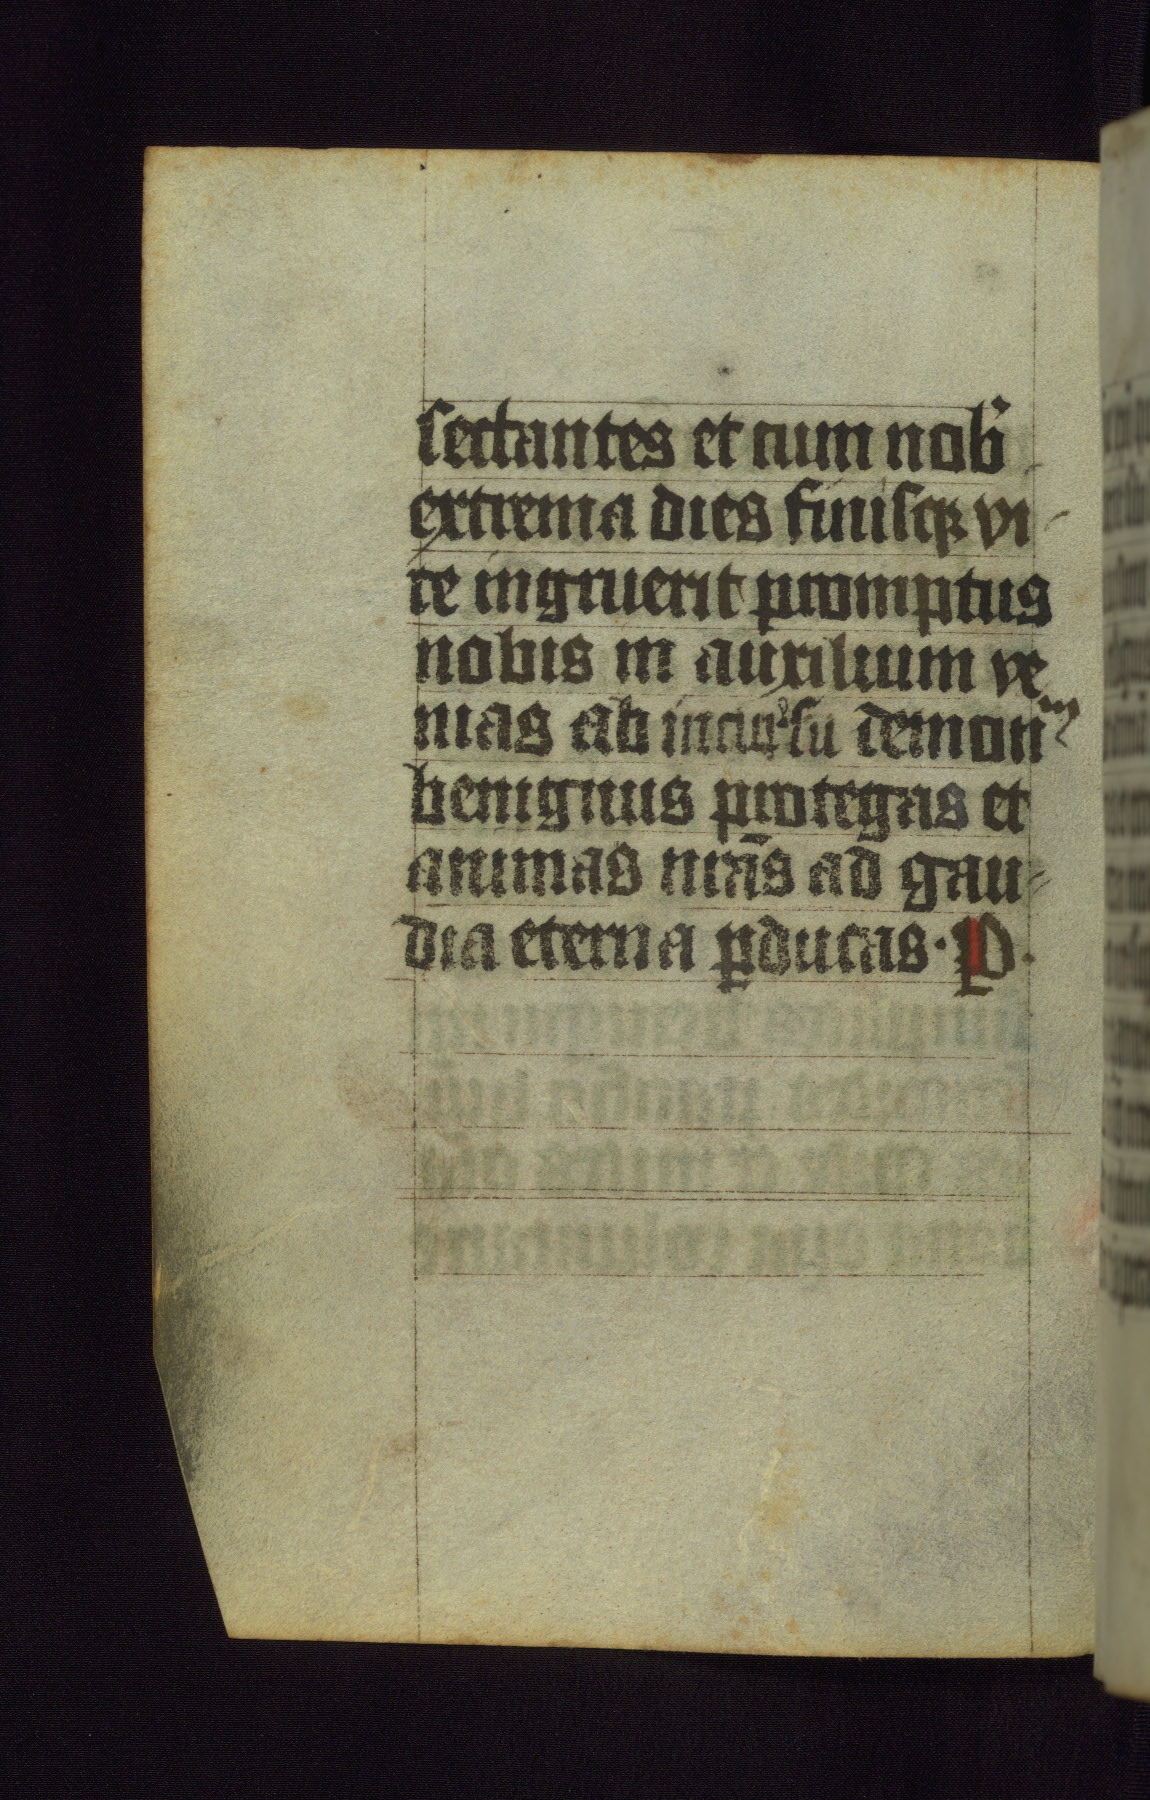 sectantes et cum nob̕
extrema dies finisqꝫ vi-
te ingruerit promptus
nobis in auxilium ve
nias ab incursu demoniū
benignus protegas et
animas nr̄as ad gau-
dia eterna ꝑducas · P ·